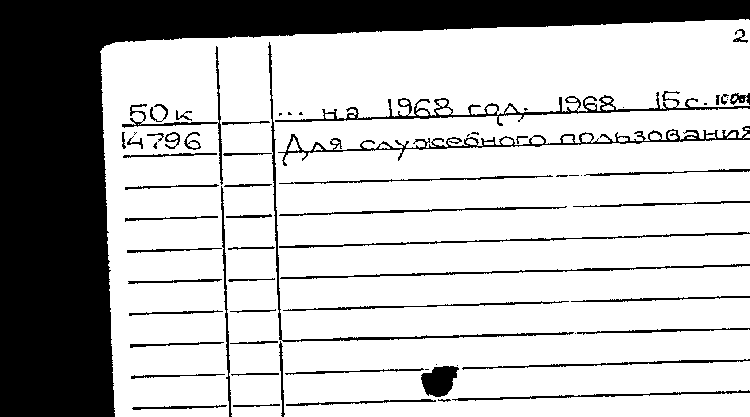 2
50к ... на 1968 год. 1968. 15с.
14796 Для служебного пользования